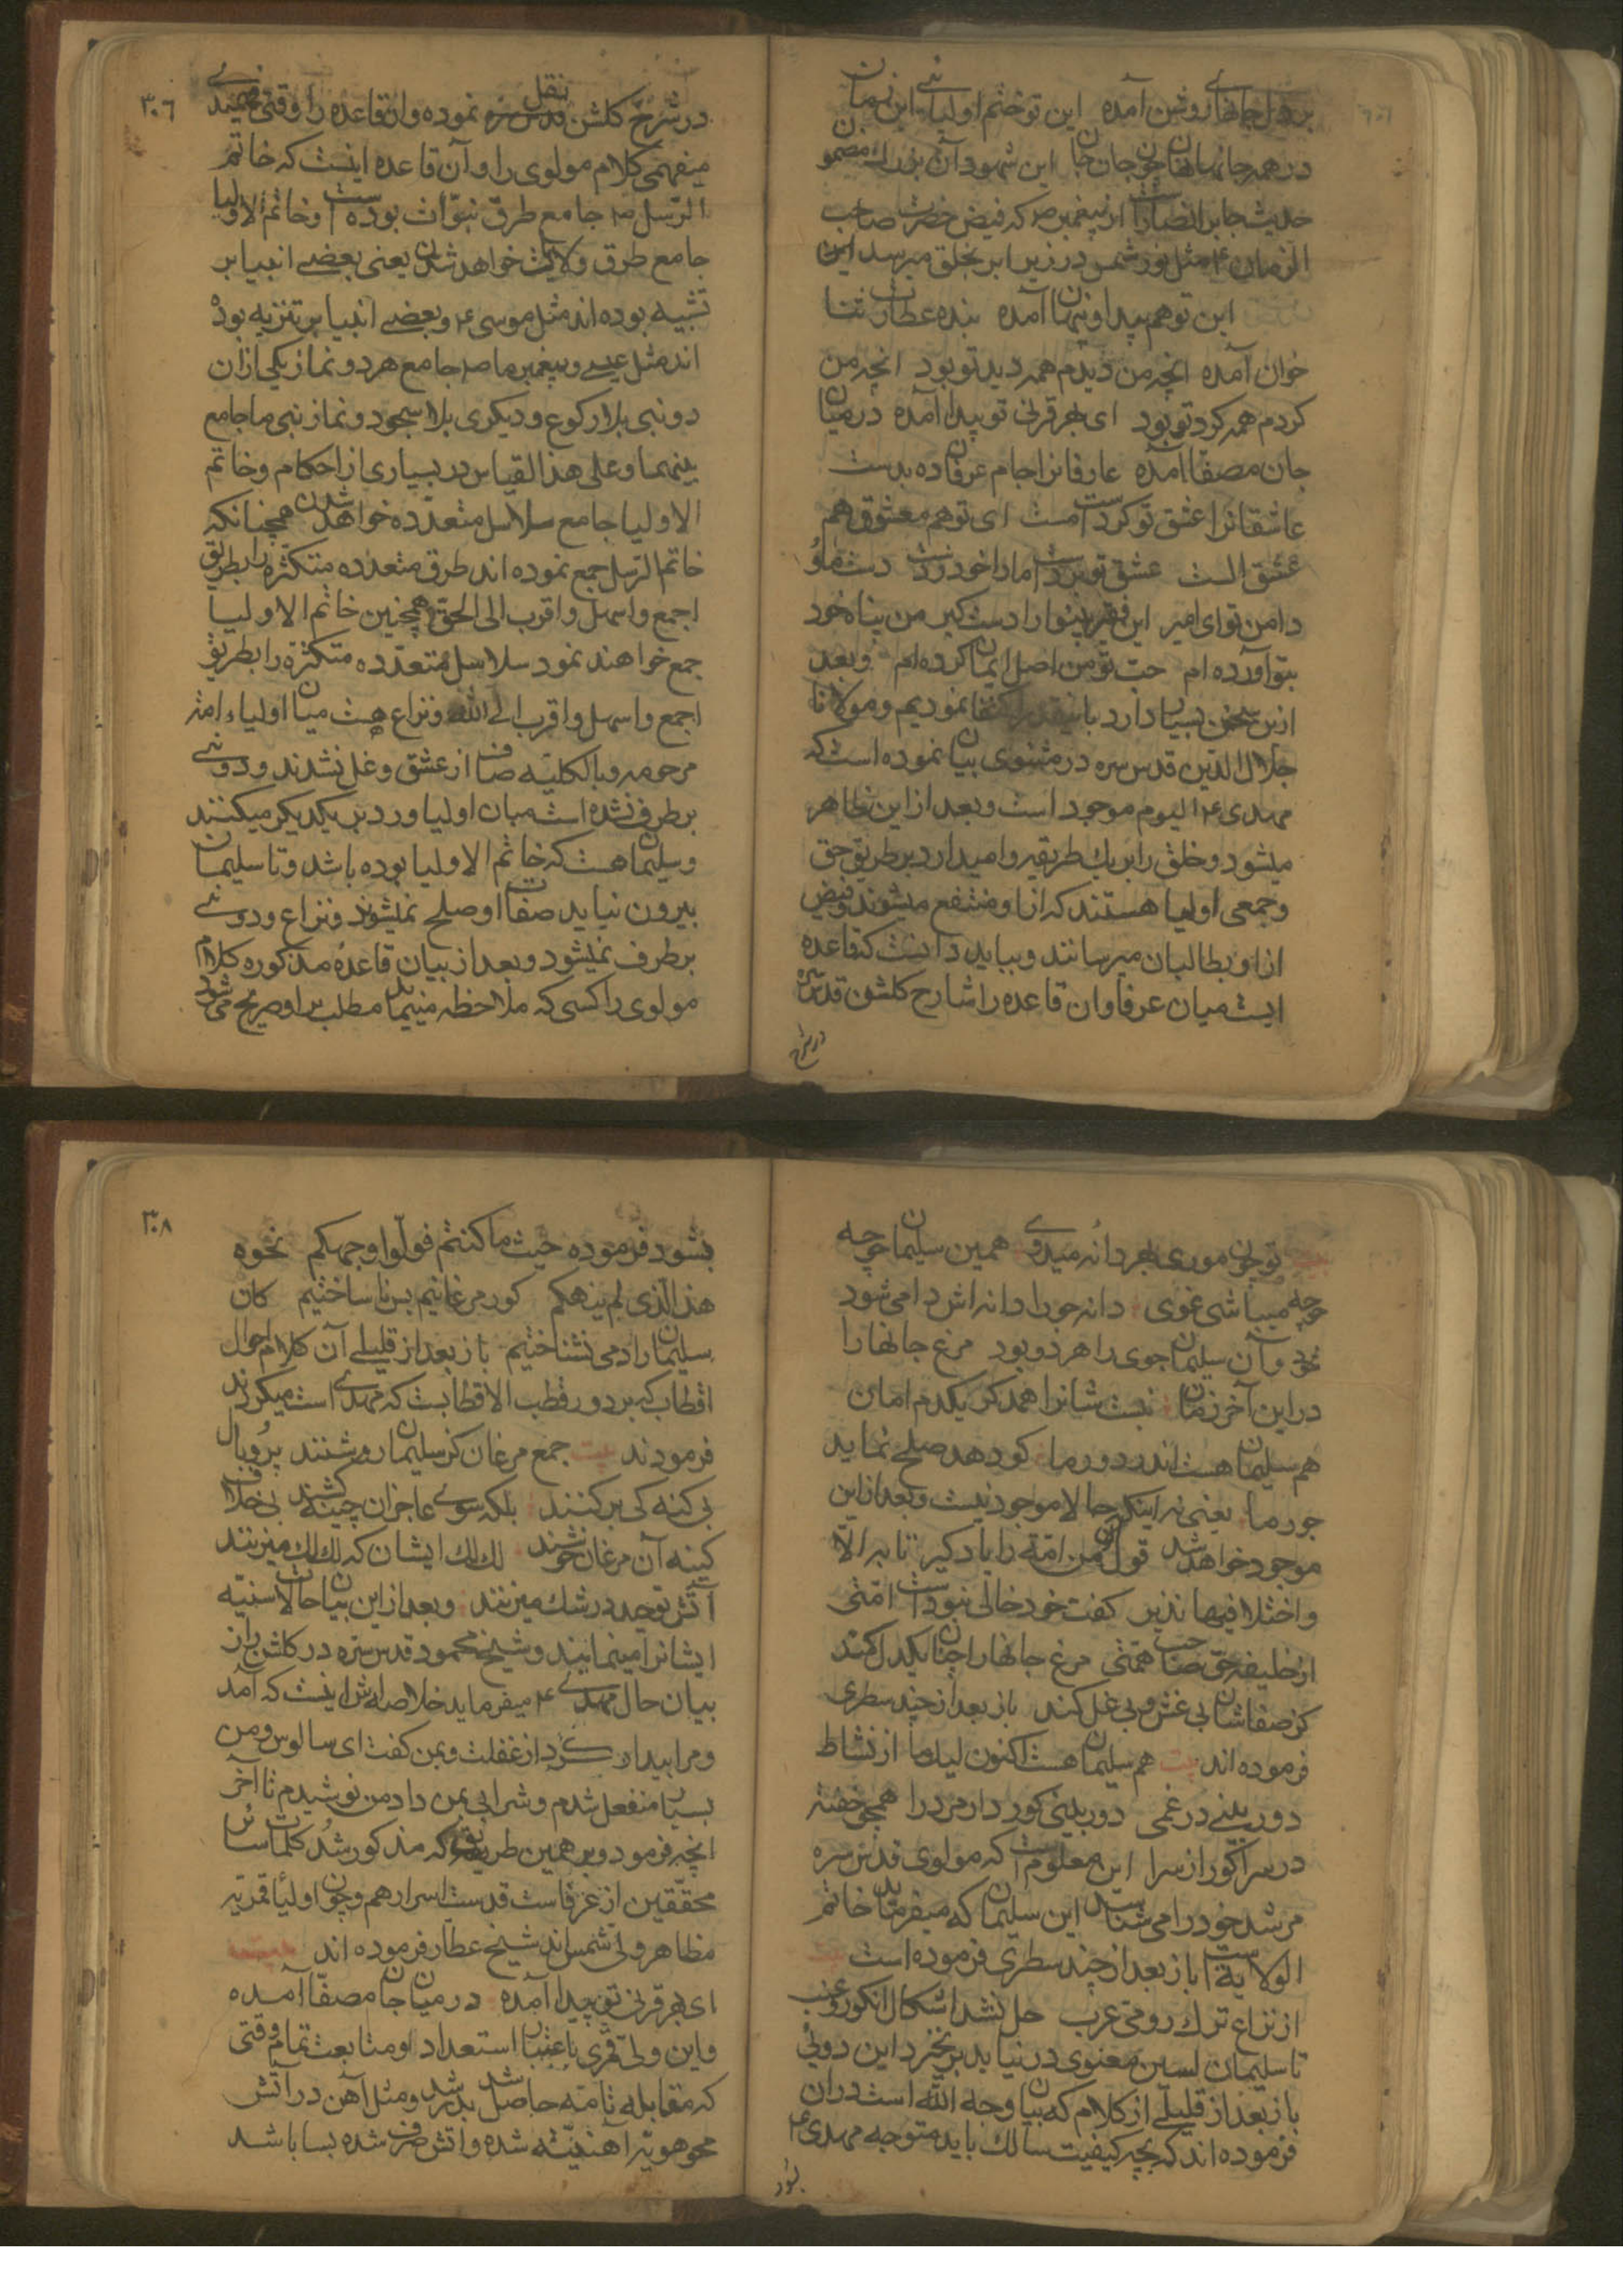 بر دل جانهای روشن آمده این تو ختم اولیائی این زمان
در همه جانها نهان چون جان جان این شهود آن بزرك مضمون
حدیث جابر انصاریست از پیغمبر ص که فیض حضرت صاحب
الزمان ع مثل نور شمس در زیر ابر بخلق میرسد این
این تو هم پیدا و پنهان آمده بنده عطارت ثنا
خوان آمده انچه من دیدم همه دید تو بود انچه من
کردم همه کرد تو بود ای بهر قرنی تو پیدا آمده درمیان
جان مصفا آمده عارفانرا جام عرفان ده بدست
عاشقانرا عشق تو کردست مست ای تو هم معشوق هم
عشق الست عشق تو بردست ما را خود ز دست دست ما و
دامن تو ای امیر این فقیر بینوا را دست کیر من پناه خود
بتو آورده ام حب تو من اصل ایمان کرده ام و بعد
ازین سخن بسیار دارد باینقدر اکتفا نمودیم و مولانا
جلال الدین قدس سره در مثنوی بیان نموده است که
مهدی ع الیوم موجود است و بعد از این ظاهر
میشود و خلق را بر یك طریقه وامیدارد بر طریق حق
و جمعی اولیا هستند که از او منتفع میشوند و فیض
از او بطالبان میرسانند و بباید دانست که قاعده
ایست میان عرفا و ان قاعده را شارح کلشن قدس سره
در شرح
۳۰۶
در شرح کلشن نقل نموده و ان قاعده را وقتی فهمیدی
میفهمی کلام مولوی را و آن قاعده اینست که خاتم
الرسل ص جامع طرق نبوات بوده است و خاتم الاولیا
جامع طرق ولایات خواهد شدن یعنی بعضی انبیا بر
تشبیه بوده اند مثل موسی ع و بعضی انبیا بر تنزیه بوده
اند مثل عیسی و پیغمبر ما ص جامع هر دو نماز یکی از ان
دو نبی بلا رکوع و دیکری بلا سجود و نماز نبی ما جامع
بینهما و علی هذا القیاس در بسیاری از احکام و خاتم
الاولیا جامع سلاسل متعدده خواهد شدن همچنانکه
خاتم الرسل جمع نموده اند طرق متعدده متکثره را بطریق
اجمع و اسهل و اقرب الی الحق همچنین خاتم الاولیا
جمع خواهند نمود سلاسل متعدده متکثره را بطریق
اجمع و اسهل و اقرب الی الله و نزاع هست میان اولیاء امت
مرحومه و بالکلیه صاف از عشق و غل نشدند و دوئی
بر طرف نشده است میان اولیا و رد بر یکدیکر میکنند
و سلیمان هست که خاتم الاولیا بوده باشد و تا سلیمان
بیرون نیاید صفات او صلح نمیشوند و نزاع و دوئی
بر طرف نمیشود و بعد از بیان قاعدهٔ مذکوره کلام
مولوی را کسی که ملاحظه مینماید مطلب بر او صریح میشود
بیت تو چون موری بهر دانه میدوی همین سلیمان جو چه
میباشی غوی دانه جو را دانه اش دامی شود
و آن سلیمان جوی را هر دو بود مرغ جانها را
در این آخر زمان نیست شانرا همدکر یکدم امان
هم سلیمان هست اندر دور ما کو دهد صلح نماید
جور ما یعنی نه اینکه حالا موجود نیست و بعد از این
موجود خواهد شد قول ان من امة را یاد کیر تا به الّا
و اختلا فیها نذیر کفت خود خالی نبودست امتی
از خلیفه حق صاحب همتی مرغ جانها را چنان یکدل کند
کز صفاشان بی غش و بی غل کند باز بعد از چند سطری
فرموده اند بیت هم سلیمان هست اکنون لیك ما از نشاط
دوربینی در عمی دوربینی کور دارد مرد را همچو خفته
در سرا کور از سرا این معلوم است که مولوی قدس سره
مرشد خود را میشناسد این سلیمان که میفرماید خاتم
الولایة است باز بعد از چند سطری فرموده است بیت
از نزاع ترك رومی عرب حل نشد اشکال انکور و عنب
تا سلیمان لسین معنوی در نیاید بر نخیزد این دوئی
باز بعد از قلیلی از کلام که بیان وجه الله است دران
فرموده اند که بچه کیفیت سالك باید متوجه مهدی ع
بشود
۳۰۸
بشود فرموده حیث ما کنتم فولوا وجهکم نحوه
هذا الذی لم ینهکم کور مرغانیم بس ناساختیم کان
سلیمان را دمی نشناختیم باز بعد از قلیلی آن کلام احوال
اقطاب که بر دور قطب الاقطابست که مهدی است میکردند
فرمودند بیت جمع مرغان کز سلیمان روشنند پر و بال
بی کنه کی بر کنند بلکه سوی عاجزان چینه کشند بی خلاف
کینه آن مرغان خوشند لك لك ایشان که لك لك میزنند
آتش توحید در شك میزنند و بعد از این بیان حالات سنیّه
ایشانرا مینمایند و شیخ محمود قدس سره در کلشن راز
بیان حال مهدی ع میفرماید خلاصه اش اینست که آمد
و مرا بیدار کرد از غفلت و بمن کفت ای سالوس و من
بسیار منفعل شدم و شرابی بمن داد من نوشیدم تا آخر
انچه فرمود و بر همین طریقه که مذکور شد کلمات سائر
محققین از عرفاست قدست اسرارهم و چون اولیاء قمریه
مظاهر ولی شمس اند شیخ عطار فرموده اند
ای بهر قرنی تو پیدا آمده در میان جان مصفا آمده
و این ولی قمری باعتبار استعداد او متابعت تمام وقتی
که مقابله تامه حاصل شد بدر شد و مثل آهن در آتش
محو هویة آهنیّه شده و اتش صرف شده بسا باشد